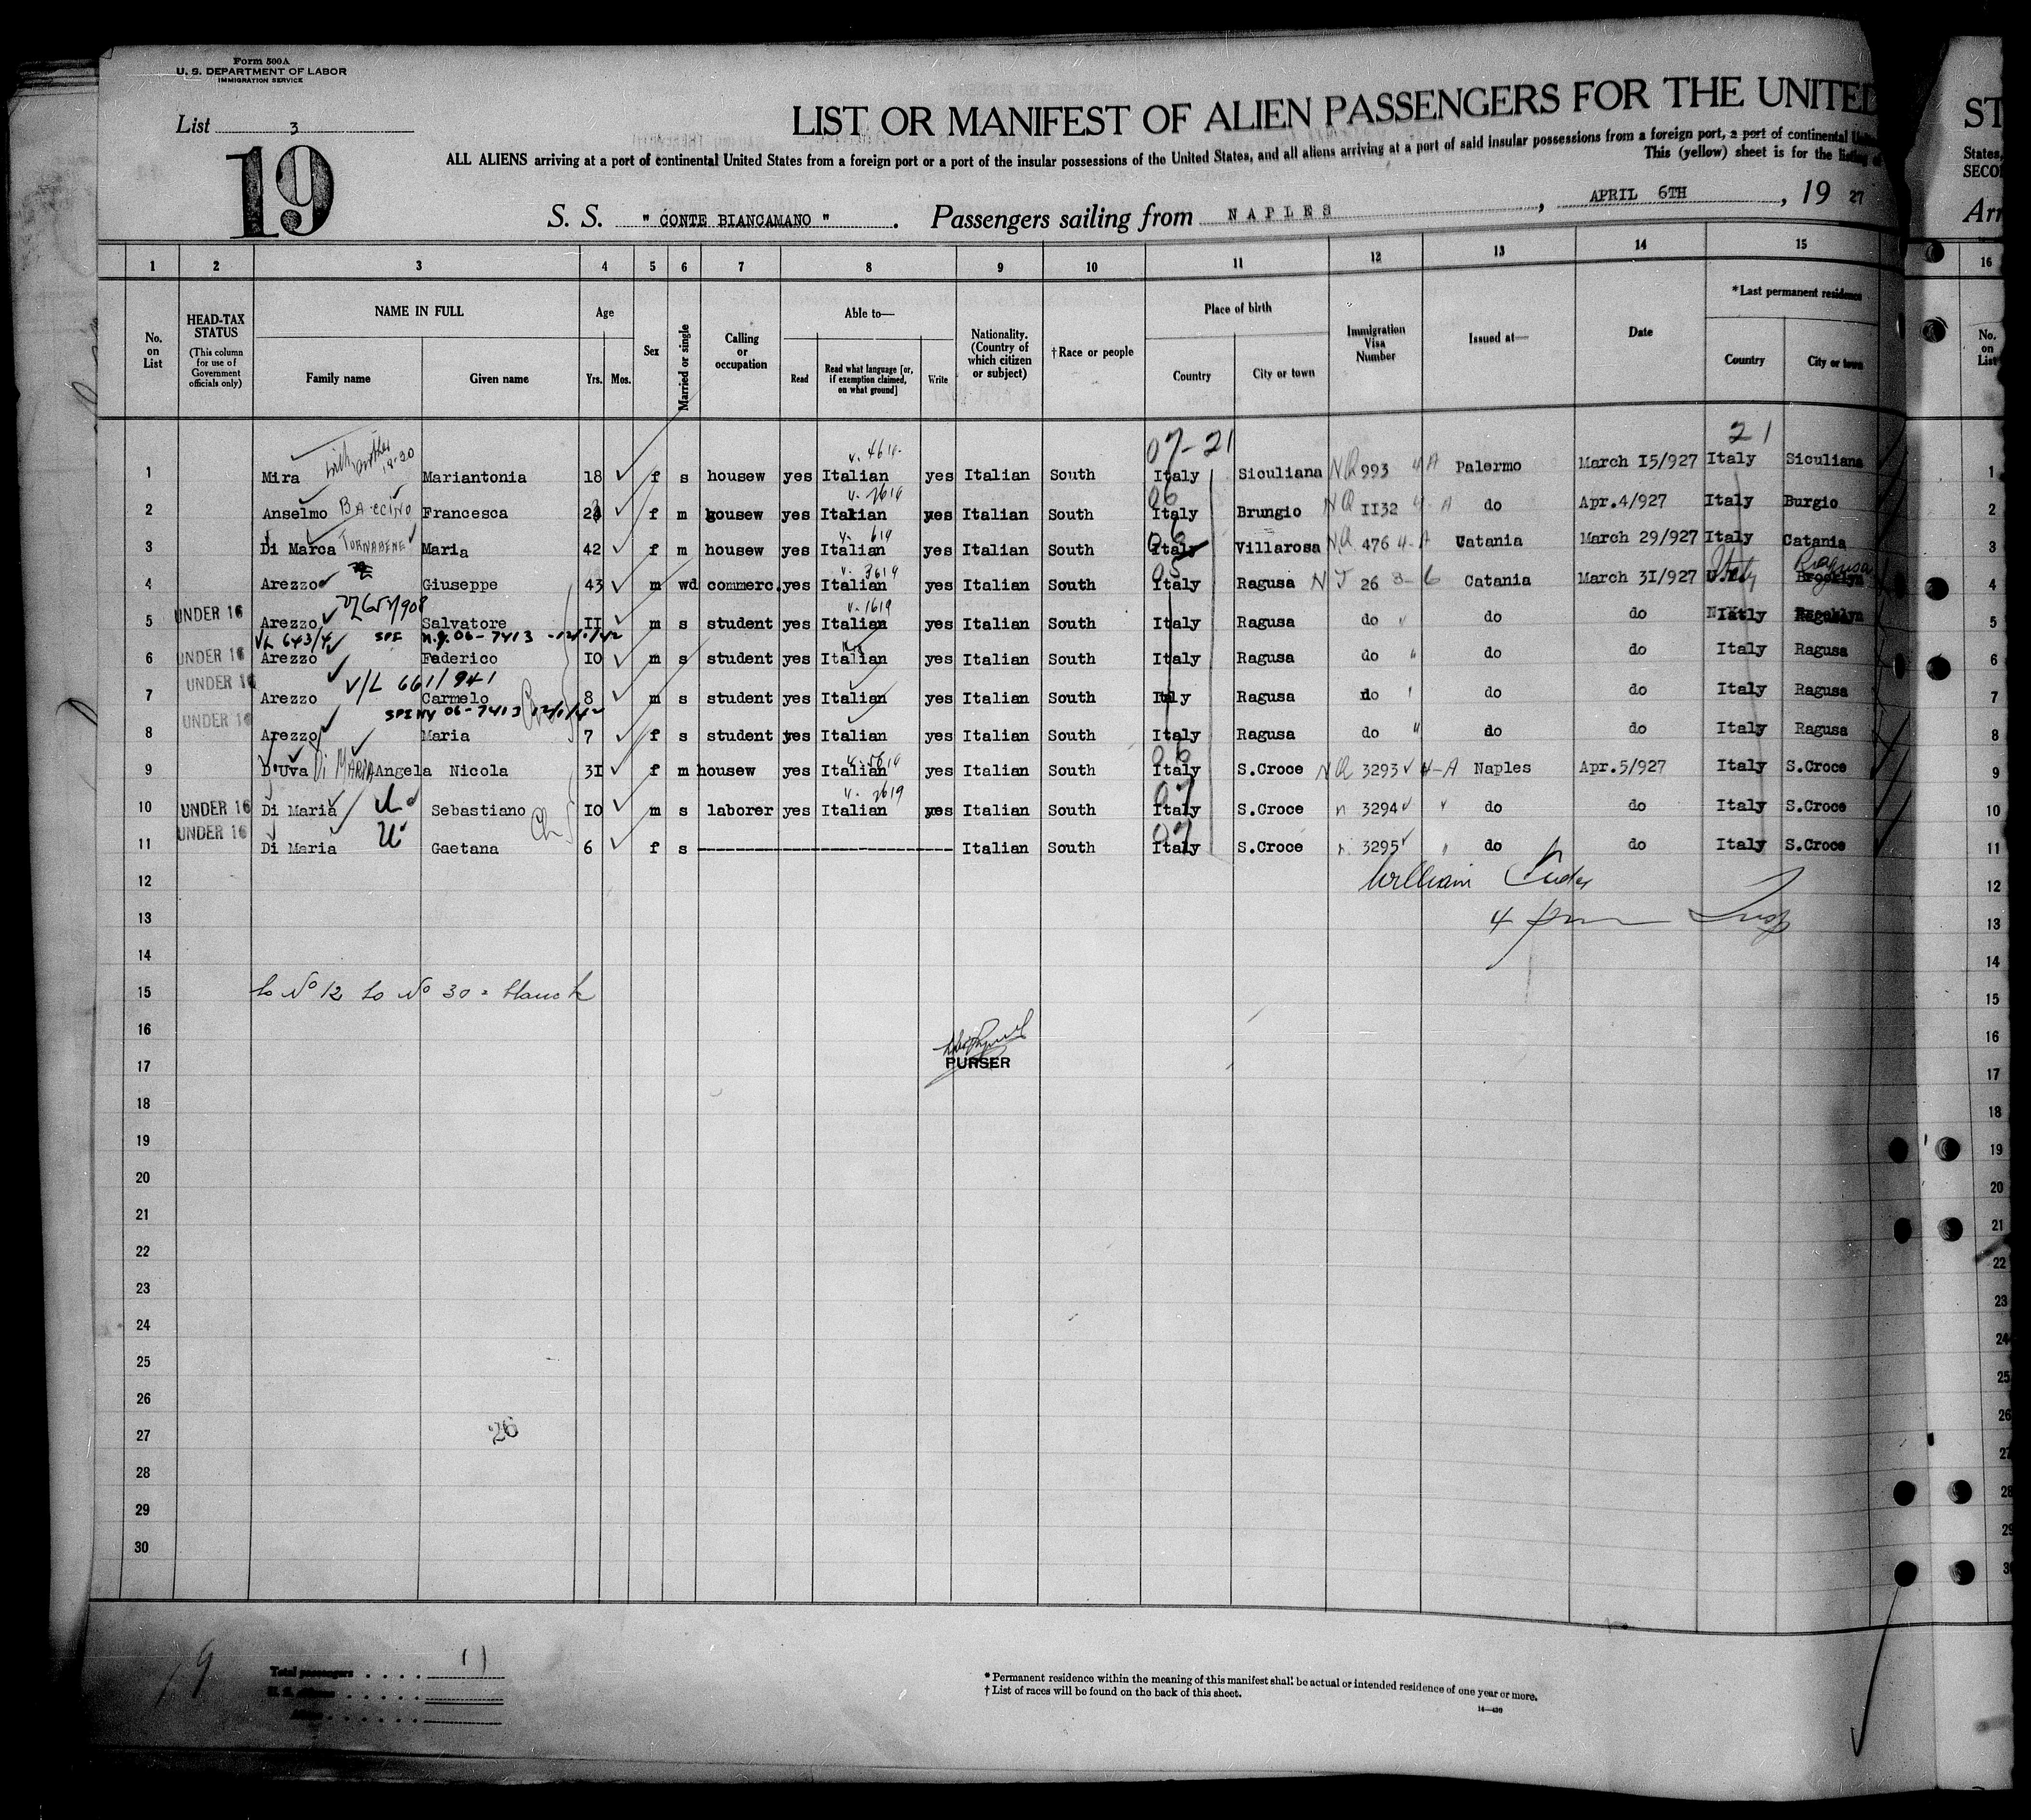 Form 500A
U. S. DEPARTMENT OF LABOR
IMMIGRATION SERVICE
List 3
19
LIST OR MANIFEST OF ALIEN PASSENGERS FOR THE UNITED
ALL ALIENS arriving at a port of continental United States from a foreign port or a part of the insular possessions of the United States, and all aliens arriving at a port of said insular possessions from a foreign port, a port of continental
This (yellow) sheet is for the listing of
S. S. " CONTE BIANCAMANO ". Passengers sailing from NAPLES, APRIL 6TH, 19 27
ST
States,
SECO
Arr
1 2 3 4 5 6 7 8 9 10 11 12 13 14 15 16
No. on List
HEAD-TAX STATUS
(This column for use of Government officials only)
NAME IN FULL
Family name Given name
Age
Yrs. Mos.
Sex
Married or single
Calling or occupation
Able to—
Read
Read what language [or, if exemption claimed, on what ground]
Write
Nationality. (Country of which citizen or subject)
†Race or people
Place of birth
Country City or town
Immigration Visa Number
Issued at—
Date
*Last permanent residence
Country City or town
No. on List
07-21 21
1 Mira Mariantonia 18 f s housew yes Italian yes Italian South Italy Siculiana NQ 993 4 A Palermo March 15/927 Italy Siculiana 1
2 Anselmo BACCINO Francesca f m housew yes Italian yes Italian South Italy Brungio NQ 1132 4-A do Apr.4/927 Italy Burgio 2
3 Di Marca TORNABENE Maria 42 f m housew yes Italian yes Italian South Italy Villarosa NQ 476 4-A Catania March 29/927 Italy Catania 3
4 Arezzo Giuseppe 43 m wd commerc. yes Italian yes Italian South Italy Ragusa 26 3-6 Catania March 31/927 Italy Ragusa Brooklyn 4
UNDER 16
5 Arezzo Salvatore 11 m s student yes Italian yes Italian South Italy Ragusa do do do Italy 5
UNDER 16
6 Arezzo Federico 10 m s student yes Italian yes Italian South Italy Ragusa do do do Italy Ragusa 6
UNDER 16 V/L 661/941
7 Arezzo Carmelo 8 m s student yes Italian yes Italian South Italy Ragusa do do do Italy Ragusa 7
UNDER 16
8 Arezzo Maria 7 f s student yes Italian yes Italian South Italy Ragusa do do do Italy Ragusa 8
9 D'Uva Di MARIA Angela Nicola 31 f m housew yes Italian yes Italian South Italy S.Croce NQ 3293 4-A Naples Apr.5/927 Italy S.Croce 9
10 UNDER 16 Di Maria Sebastiano 10 m s laborer yes Italian yes Italian South Italy S.Croce 3294 do do Italy S.Croce 10
UNDER 16
11 Di Maria Gaetana 6 f s Italian South Italy S.Croce 3295 do do Italy S.Croce 11
12 William 12
13 13
14 14
15 to No 12 to No 30 = blank 15
16 16
17 PURSER 17
18 18
19 19
20 20
21 21
22 22
23 23
24 24
25 25
26 26
27 26 27
28 28
29 29
30 30
19
Total passengers 11
* Permanent residence within the meaning of this manifest shall be actual or intended residence of one year or more.
† List of races will be found on the back of this sheet.